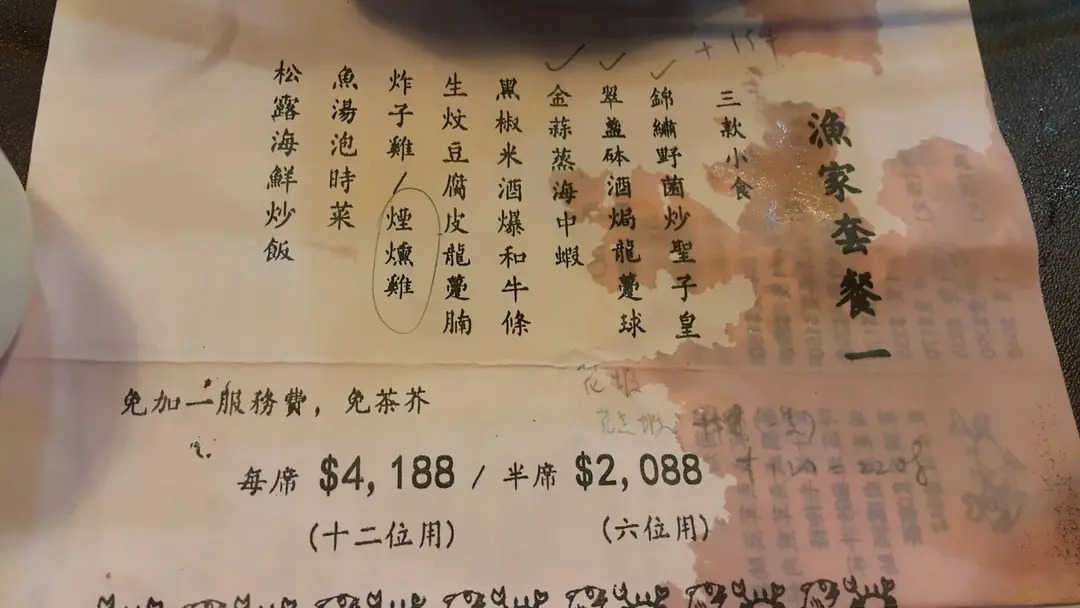 漁家套餐一
三款小食
錦繡野菌炒聖子皇
翠盞砵酒焗龍躉球
金蒜蒸海中蝦
黑椒米酒爆和牛條
生炆豆腐皮龍躉腩
炸子雞/煙燻雞
魚湯泡時菜
松露海鮮炒飯
花蝦
免加一服務費，免茶芥
每席 $4,188 / 半席 $2,088
(十二位用) (六位用)